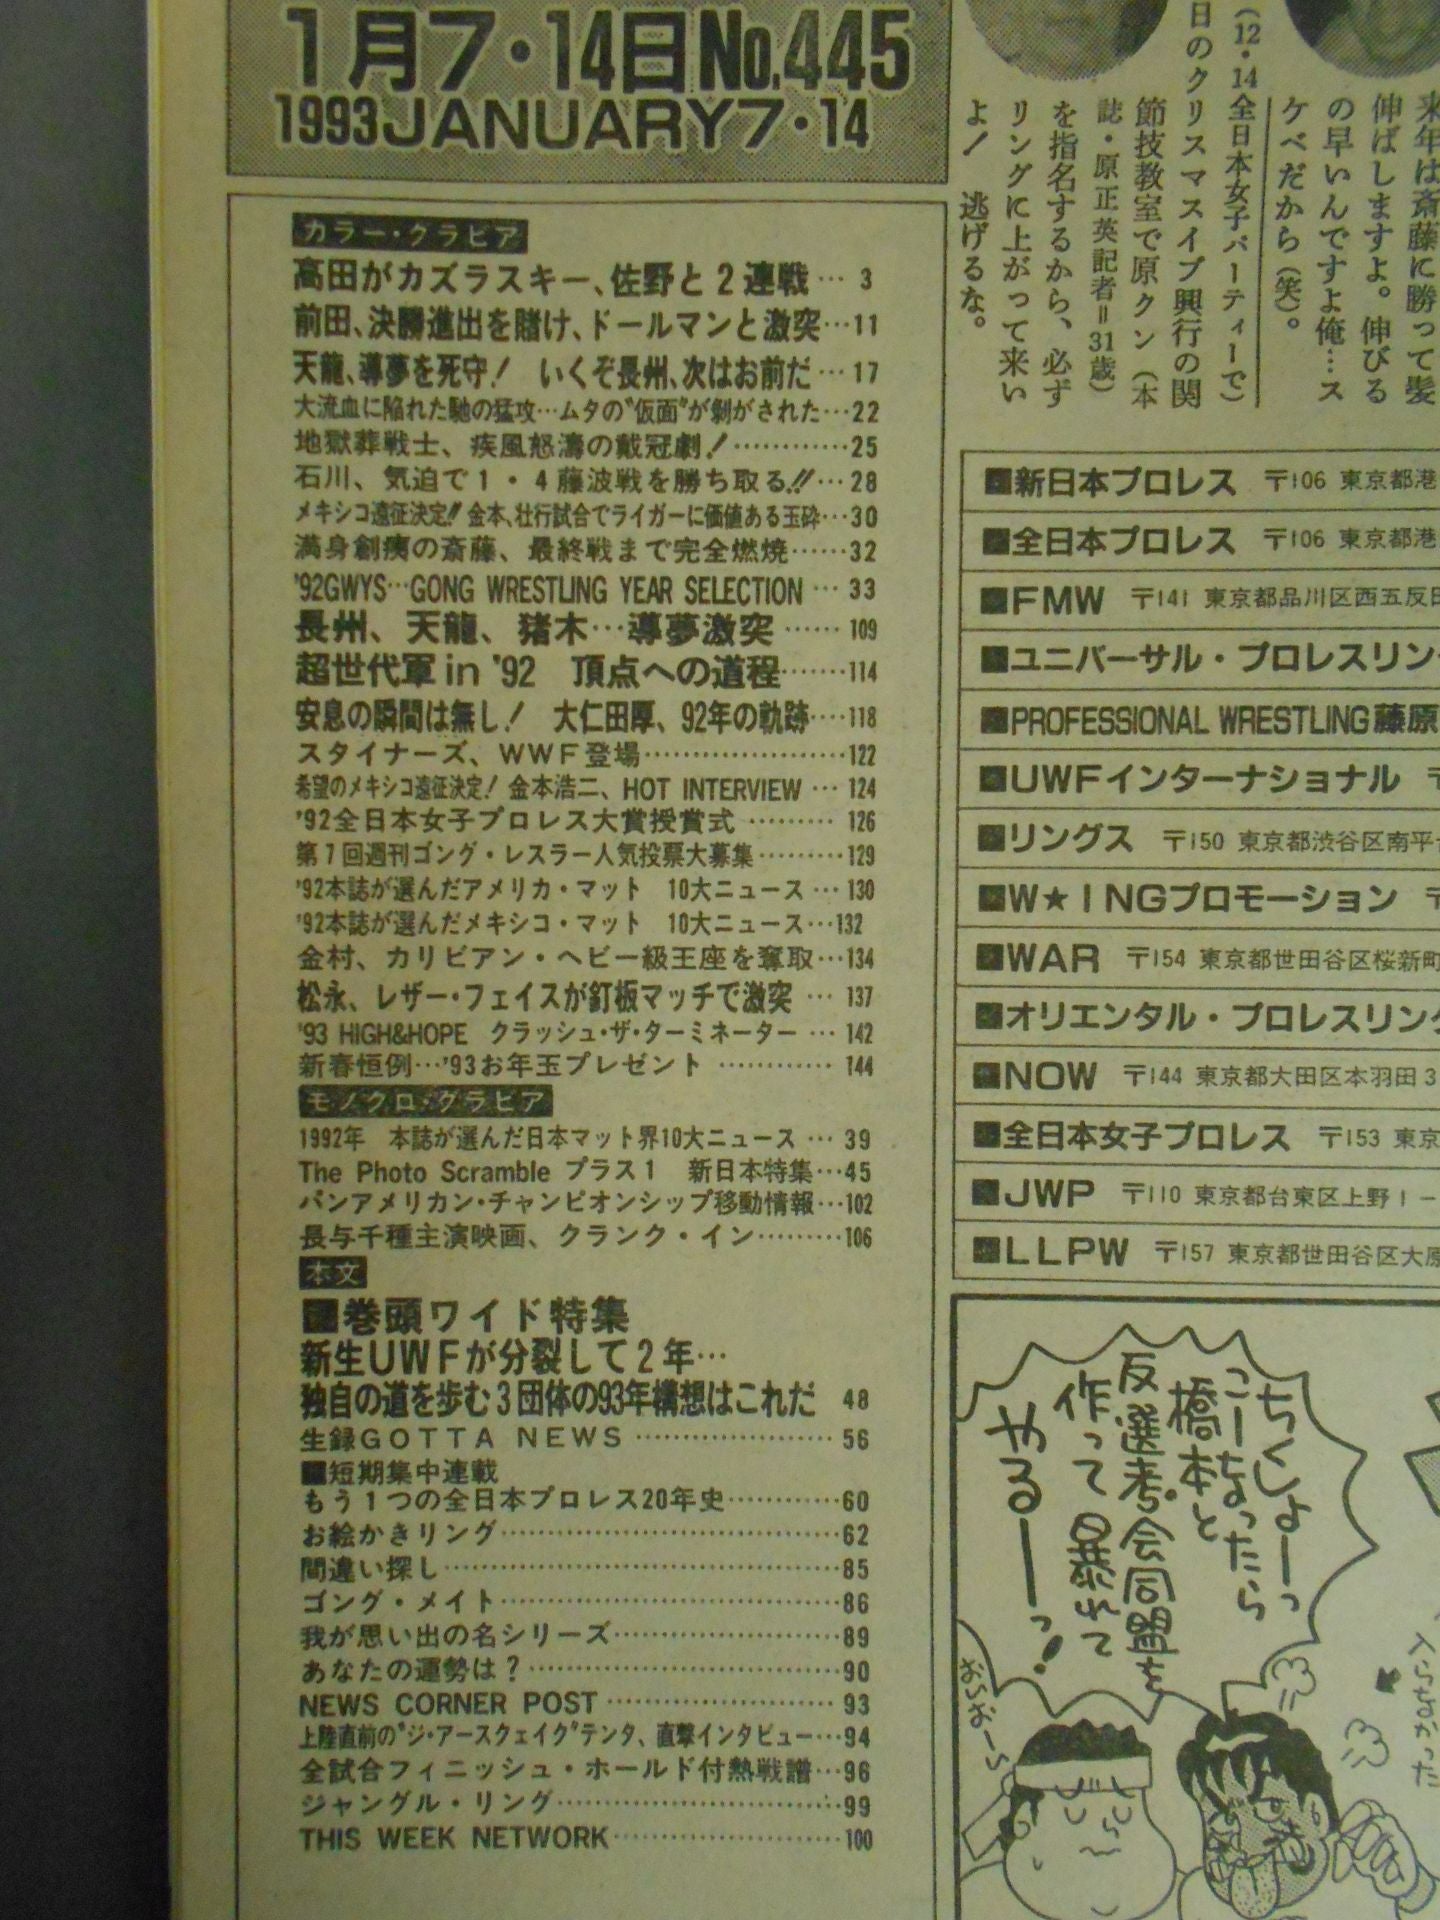 1月7・14日No.445
1993JANUARY7・14
カラー・グラビア
高田がカズラスキー、佐野と2連戦… 3
前田、決勝進出を賭け、ドールマンと激突…11
天龍、導夢を死守! いくぞ長州、次はお前だ…17
大流血に陥れた馳の猛攻…ムタの“仮面”が剝がされた…22
地獄葬戦士、疾風怒濤の戴冠劇!…………25
石川、気迫で1・4藤波戦を勝ち取る!!…28
メキシコ遠征決定!! 金本、壮行試合でライガーに価値ある玉砕…30
満身創痍の斎藤、最終戦まで完全燃焼……32
'92GWYS…GONG WRESTLING YEAR SELECTION … 33
長州、天龍、猪木…導夢激突 …… 109
超世代軍in '92 頂点への道程……114
安息の瞬間は無し! 大仁田厚、92年の軌跡…118
スタイナーズ、WWF登場…………………122
希望のメキシコ遠征決定! 金本浩二、HOT INTERVIEW … 124
'92全日本女子プロレス大賞授賞式 ……… 126
第7回週刊ゴング・レスラー人気投票大募集………129
'92本誌が選んだアメリカ・マット 10大ニュース … 130
'92本誌が選んだメキシコ・マット 10大ニュース…132
金村、カリビアン・ヘビー級王座を奪取…134
松永、レザー・フェイスが釘板マッチで激突 … 137
'93 HIGH&HOPE クラッシュ・ザ・ターミネーター … 142
新春恒例…'93お年玉プレゼント ………… 144
モノクロ・グラビア
1992年 本誌が選んだ日本マット界10大ニュース … 39
The Photo Scramble プラス1 新日本特集…45
パンアメリカン・チャンピオンシップ移動情報…102
長与千種主演映画、クランク・イン………106
本文
巻頭ワイド特集
新生UWFが分裂して2年…
独自の道を歩む3団体の93年構想はこれだ 48
生録GOTTA NEWS ………………… 56
短期集中連載
もう1つの全日本プロレス20年史…………60
お絵かきリング………………………………62
間違い探し……………………………………85
ゴング・メイト………………………………86
我が思い出の名シリーズ……………………89
あなたの運勢は?……………………………90
NEWS CORNER POST …………………… 93
上陸直前の“ジ・アースクェイク”テンタ、直撃インタビュー…94
全試合フィニッシュ・ホールド付熱戦譜…96
ジャングル・リング…………………………99
THIS WEEK NETWORK……………………100
来年は斎藤に勝って髪
伸ばしますよ。伸びる
の早いんですよ俺…ス
ケベだから(笑)。
(12・14全日本女子パーティーで)
日のクリスマスイブ興行の関
節技教室で原クン(本
誌・原正英記者=31歳)
を指名するから、必ず
リングに上がって来い
よ! 逃げるな。
新日本プロレス 〒106 東京都港
全日本プロレス 〒106 東京都港
FMW 〒141 東京都品川区西五反田
ユニバーサル・プロレスリン
PROFESSIONAL WRESTLING藤原
UWFインターナショナル 〒
リングス 〒150 東京都渋谷区南平
W★INGプロモーション 〒
WAR 〒154 東京都世田谷区桜新町
オリエンタル・プロレスリン
NOW 〒144 東京都大田区本羽田3
全日本女子プロレス 〒153 東京
JWP 〒110 東京都台東区上野1-
LLPW 〒157 東京都世田谷区大原
ちくしょーっ
こーなったら
橋本と
反選考会同盟を
作って暴れて
やるーーっ!
おーおーし
入らなかった